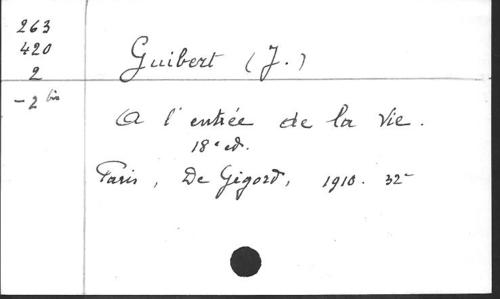 263
420
2
- 2 bis
Guibert (J.)
A l'entrée de la vie.
18e ed.
Paris, De Gigord, 1910. 32-